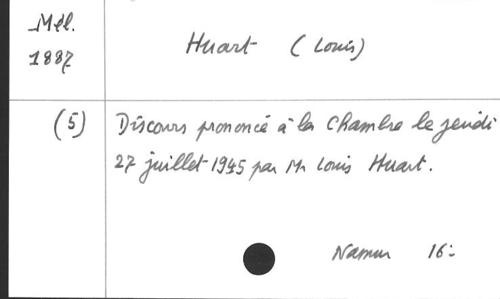 Mél.
1887
Huart (Louis)
(5)
Discours prononcé à la Chambre le jeudi
27 juillet 1945 par Mr Louis Huart.
Namur 16: